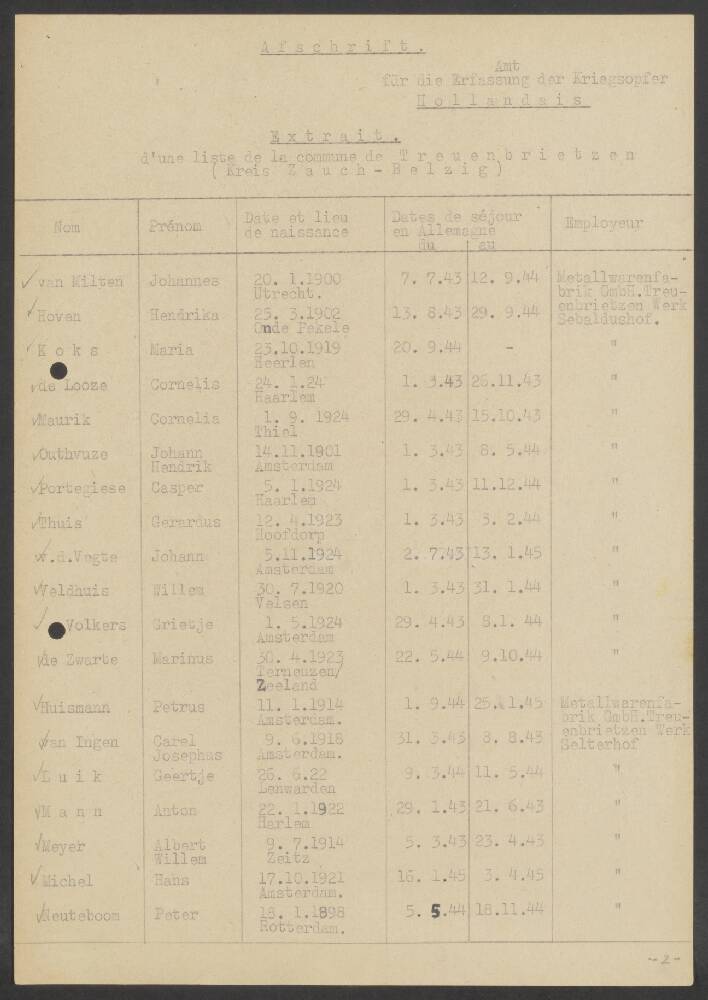 Afschrift.
Amt
für die Erfassung der Kriegsopfer
Hollandais
Extrait.
d'une liste de la commune de Treuenbrietzen
( Kreis Zauch - Belzig )
Nom Prénom Date et lieu de naissance Dates de séjour en Allemagne du au Employeur
van Milten Johannes 20. 1.1900 7. 7.43 12. 9.44 Metallwarenfa-
Utrecht. brik GmbH.Treu-
Hoven Hendrika 25. 3.1902 13. 8.43 29. 9.44 enbrietzen Werk
Onde Pekele Sebaldushof.
Koks Maria 23.10.1919 20. 9.44 - "
Heerlen
de Looze Cornelis 24. 1.24 1. 3.43 26.11.43 "
Haarlem
Maurik Cornelia 1. 9. 1924 29. 4.43 15.10.43 "
Thiel
Outhvuze Johann 14.11.1901 1. 3.43 8. 5.44 "
Hendrik Amsterdam
Portegiese Casper 5. 1.1924 1. 3.43 11.12.44 "
Haarlem
Thuis Gerardus 12. 4.1923 1. 3.43 3. 2.44 "
Hoofdorp
v.d.Vegte Johann 5.11.1924 2. 7.43 13. 1.45 "
Amsterdam
Veldhuis Willem 30. 7.1920 1. 3.43 31. 1.44 "
Velsen
Volkers Grietje 1. 5.1924 29. 4.43 8.1. 44 "
Amsterdam
de Zwarte Marinus 30. 4.1923 22. 5.44 9.10.44 "
Terneuzen/
Zeeland
Huismann Petrus 11. 1.1914 1. 9.44 25. 1.45 Metallwarenfa-
Amsterdam. brik GmbH.Treu-
van Ingen Carel 9. 6.1918 31. 3.43 8. 8.43 enbrietzen Werk
Josephus Amsterdam. Selterhof
Luik Geertje 26. 6.22 9. 3.44 11. 5.44 "
Leuwarden
Mann Anton 22. 1.1922 29. 1.43 21. 6.43 "
Harlem
Meyer Albert 9. 7.1914 5. 3.43 23. 4.43 "
Willem Zeitz
Michel Hans 17.10.1921 16. 1.45 3. 4.45 "
Amsterdam.
Neuteboom Peter 18. 1.1898 5. 5.44 18.11.44 "
Rotterdam.
-2-